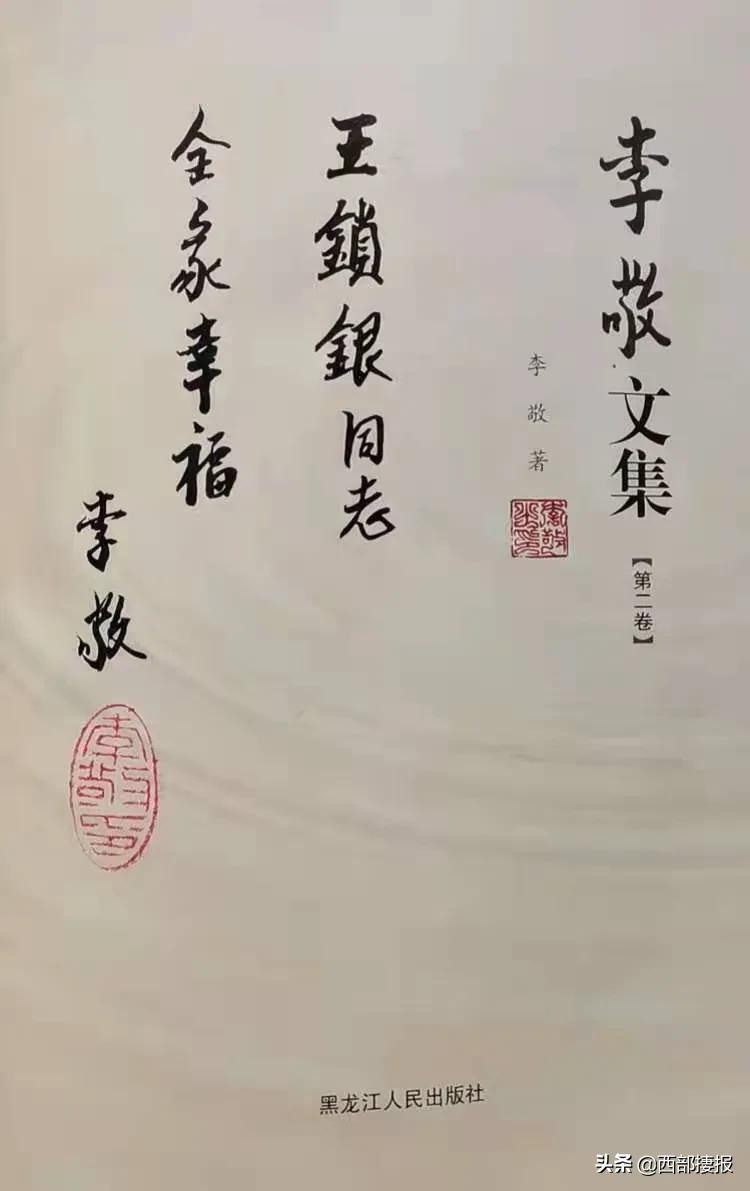 李敬文集
【第二卷】
李敬著
王鎖銀同志
全家幸福
李敬
李敬印
黑龙江人民出版社
头条 @西部捿报